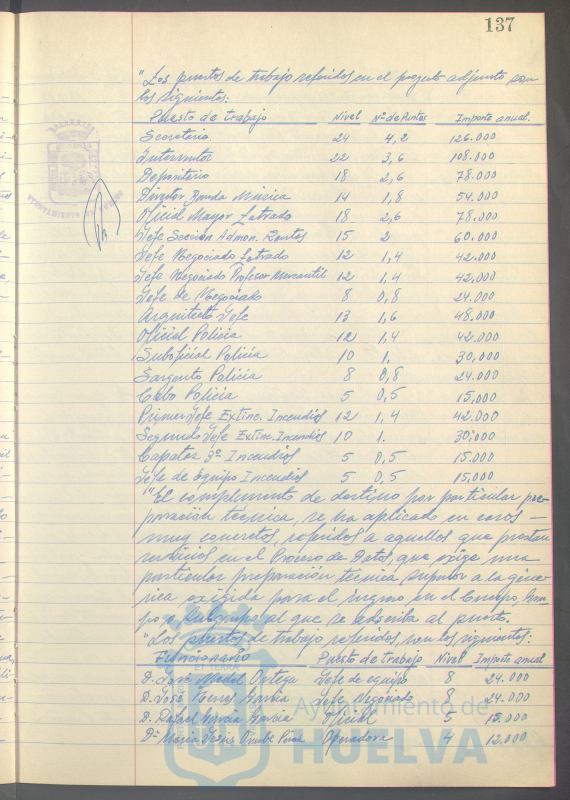 137
"Los puestos de trabajo referidos en el proyecto adjunto son
los siguientes:
Puesto de trabajo Nivel Nº de Puntos Importe anual.
Secretario 24 4,2 126.000
Interventor 22 3,6 108.000
Depositario 18 2,6 78.000
Director Banda Música 14 1,8 54.000
Oficial Mayor Letrado 18 2,6 78.000
Jefe Sección Admon. Rentas 15 2 60.000
Jefe Negociado Letrado 12 1,4 42.000
Jefe Negociado Profesor Mercantil 12 1,4 42,000
Jefe de Negociado 8 0,8 24.000
Arquitecto Jefe 13 1,6 48.000
Oficial Policia 12 1,4 42.000
Suboficial Policia 10 1, 30,000
Sargento Policia 8 0,8 24.000
Cabo Policia 5 0,5 15,000
Primer Jefe Extinc. Incendios 12 1,4 42.000
Segundo Jefe Extinc. Incendios 10 1. 30,000
Capataz 3º Incendios 5 0,5 15.000
Jefe de Equipo Incendios 5 0,5 15,000
"El complemento de destino por particular pre-
paración técnica, se ha aplicado en casos
muy concretos, referidos a aquellos que prestan
servicios en el Proceso de Datos, que exige una
particular preparación técnica superior a la gené-
rica exigida para el ingreso en el Cuerpo, Gru-
po o Subgrupo al que se adscriba al puesto.
"Los puestos de trabajo referidos, son los siguientes:
Funcionario Puesto de trabajo Nivel Importe anual
D. José Ortega Jefe de equipo 8 24.000
D. José García Jefe Negociado 8 24.000
D. Rafael García García Oficial 5 15,000
Dª María Jesús Operadora 4 12.000
Ayuntamiento de
HUELVA